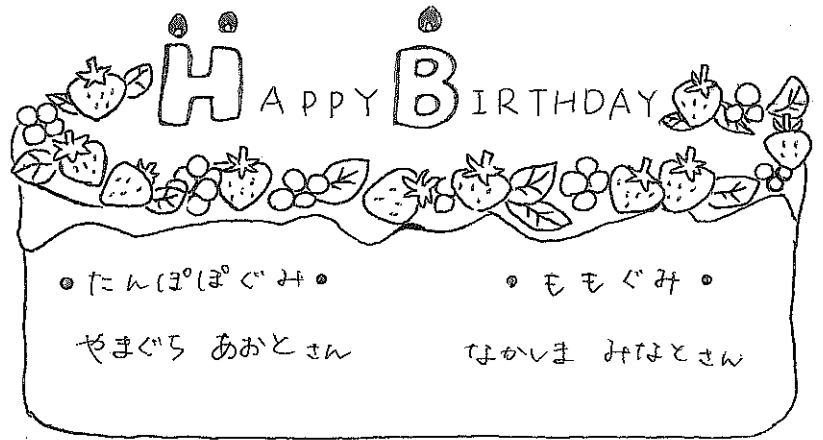 HAPPY BIRTHDAY
•たんぽぽぐみ•
やまぐち あおとさん
•ももぐみ•
なかしま みなとさん